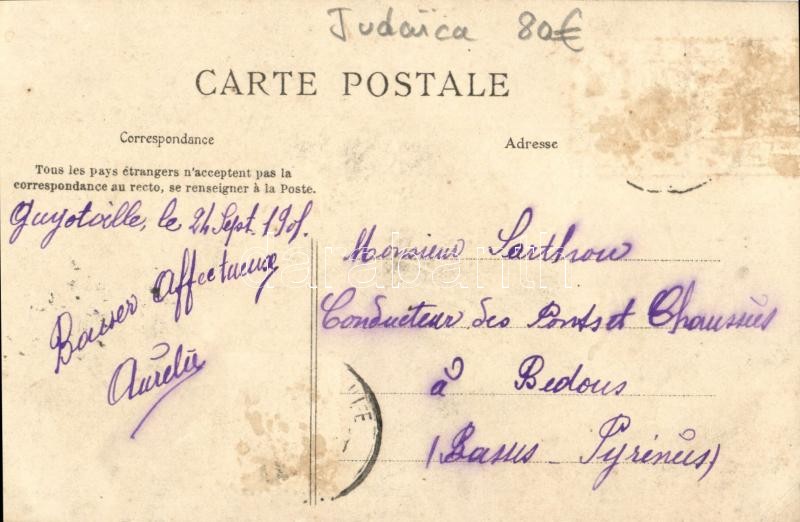 Judaïca 80€
CARTE POSTALE
Correspondance
Adresse
Tous les pays étrangers n'acceptent pas la
correspondance au recto, se renseigner à la Poste.
Guyotville, le 24 Sept. 190
Baiser affectueux
Aurélie
Monsieur Sarthou
Conducteur des Ponts et Chaussées
à Bedous
(Basses-Pyrénées)
darabanth